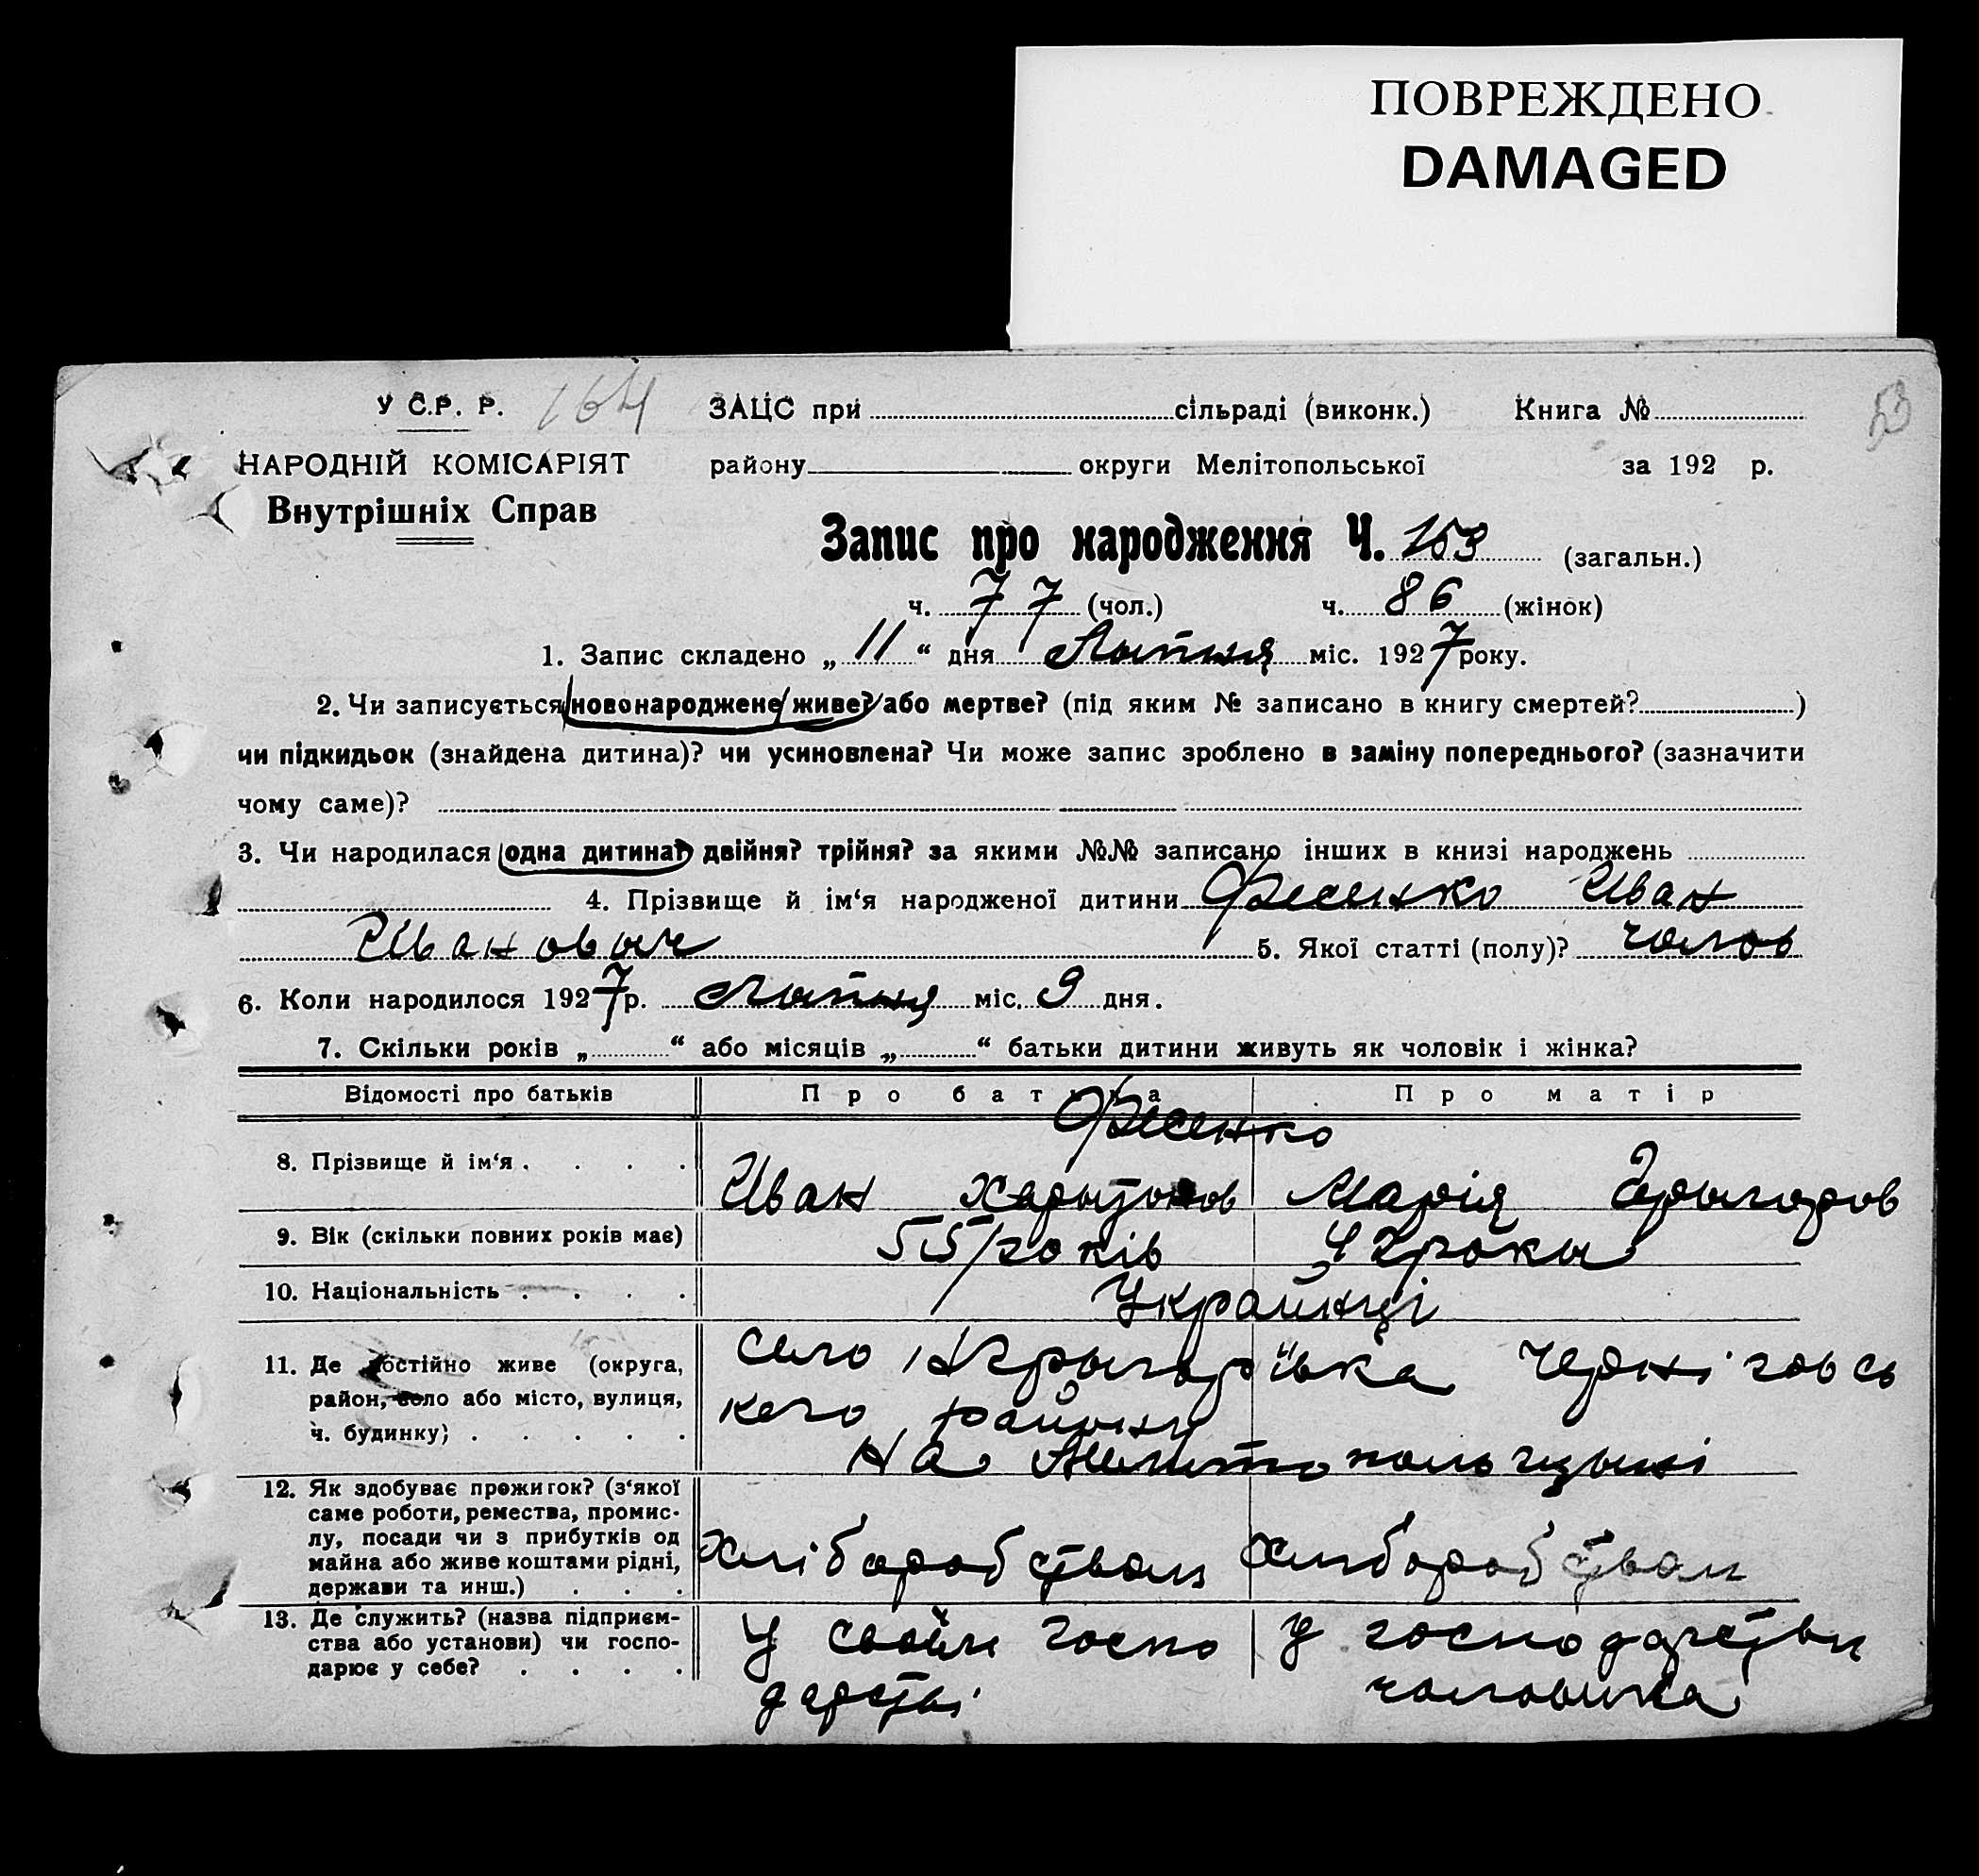 ПОВРЕЖДЕНО
DAMAGED
У С.Р. Р. 164 ЗАЦС при сільраді (виконк.) Книга № 53
НАРОДНІЙ КОМІСАРІЯТ району округи Мелітопольської за 192 р.
Внутрішніх Справ
Запис про народження Ч. 153 (загальн.)
ч. 77 (чол.) ч. 86 (жінок)
1. Запис складено „ 11 “ дня Лыпня міс. 1927 року.
2. Чи записується новонароджене живе? або мертве? (під яким № записано в книгу смертей? )
чи підкидьок (знайдена дитина)? чи усиновлена? Чи може запис зроблено в заміну попереднього? (зазначити
чому саме)?
3. Чи народилася одна дитина? двійня? трійня? за якими №№ записано інших в книзі народжень
4. Прізвище й ім‘я народженої дитини Фесенко Иван
Иванович 5. Якої статті (полу)? чолов
6. Коли народилося 1927 р. Лыпня міс. 9 дня.
7. Скільки років „ “ або місяців „ “ батьки дитини живуть як чоловік і жінка?
Відомості про батьків Про батька Про матір
Фесенко
8. Прізвище й ім‘я. Иван Харытонов Марія Грыгоров
9. Вік (скільки повних років має) 55 років 42 рокы
10. Національність Украйнці
11. Де постійно живе (округа, село Нгрыгорівка Черніговсь
район, село або місто, вулиця, кого району
ч. будинку) на Мелитопольщыні
12. Як здобуває прожиток? (з‘якої
саме роботи, ремества, промис-
лу, посади чи з прибутків од
майна або живе коштами рідні, хліборобством хлиборобством
держави та инш.)
13. Де служить? (назва підприєм- у своїм госпо у господарстви
ства або установи) чи госпо- дарстві чоловика
дарює у себе?